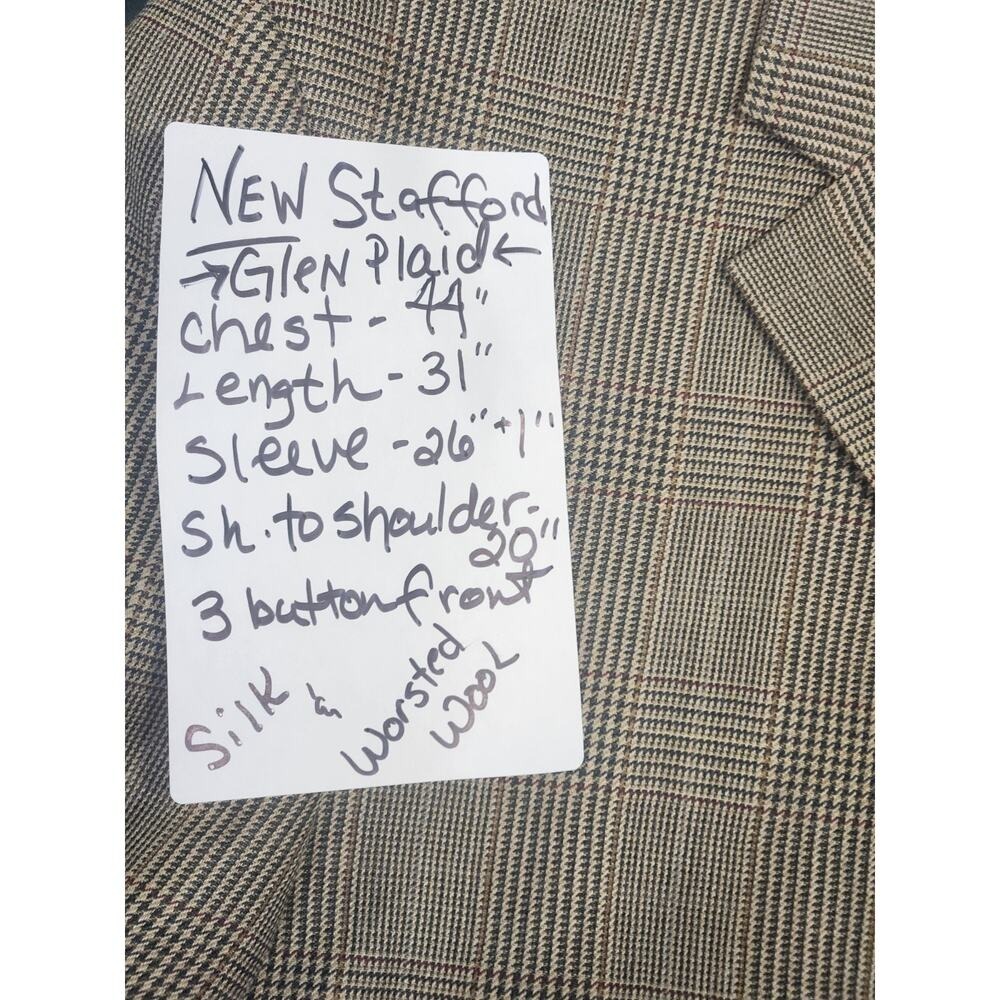 NEW Stafford
→Glen Plaid←
Chest - 44"
Length - 31"
Sleeve - 26" + 1"
Sh. to shoulder -
20"
3 button front
Silk & Worsted
Wool